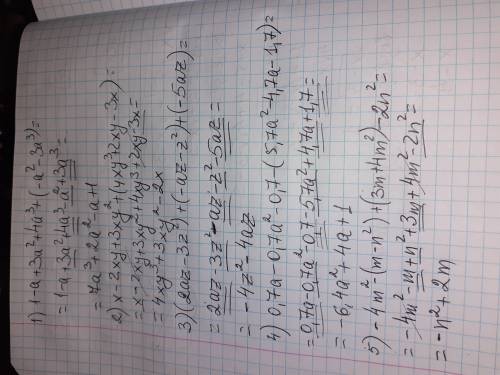 1) 1-a+3a²+4a³+(-a²-3a³)=
=1-a+3a²+4a³-a²+3a³=
=7a³+2a²-a+1
2) x-2xy+3xy²+(4xy³+2xy-3x)=
=x-2xy+3xy²+4xy³+2xy-3x=
=4xy³+3xy²-2x
3) (2az-3z²)+(-az-z²)+(-5az)=
=2az-3z²-az-z²-5az=
=-4z²-4az
4) 0,7a-0,7a²-0,7-(5,7a²-4,7a-1,7)=
=0,7a-0,7a²-0,7-5,7a²+4,7a+1,7=
=-6,4a²+4a+1
5) -4m²-(m-n²)+(3m+4m²)-2n²=
=-4m²-m+n²+3m+4m²-2n²=
=-n²+2m